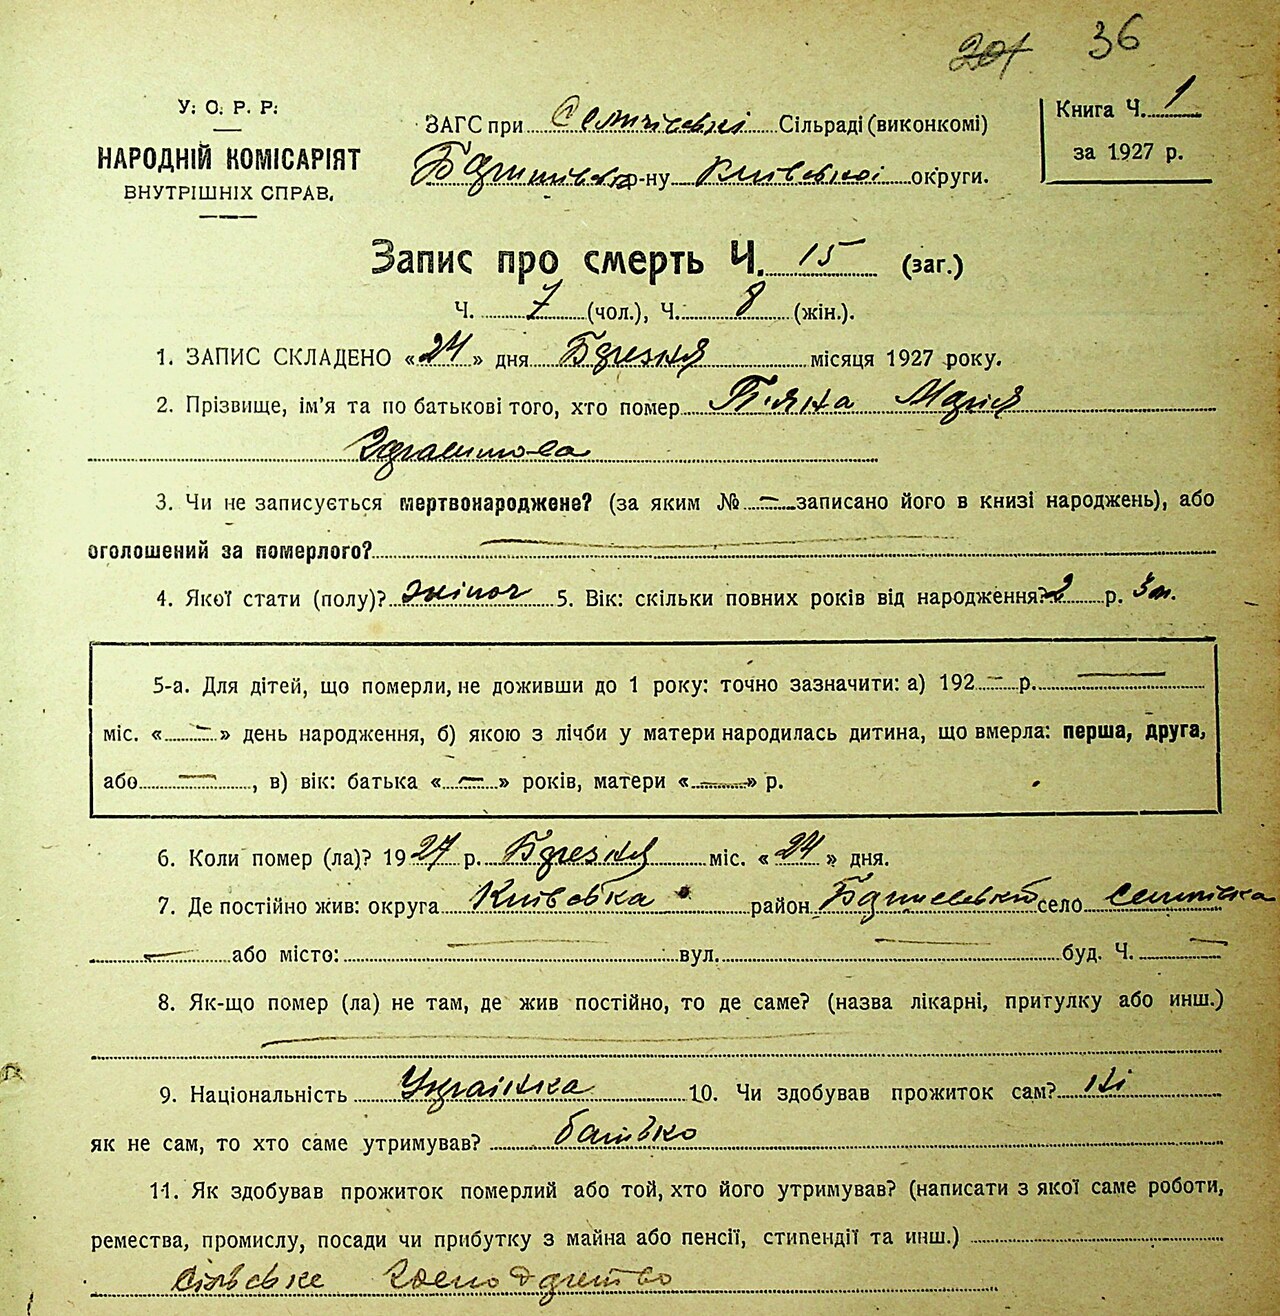 36
У. С. Р. Р.
НАРОДНІЙ КОМІСАРІЯТ
ВНУТРІШНІХ СПРАВ.
ЗАГС при Семипівські Сільраді (виконкомі)
р-ну Київської округи.
Книга Ч. 1
за 1927 р.
Запис про смерть Ч. 15 (заг.)
Ч. 7 (чол.), Ч. 8 (жін.).
1. ЗАПИС СКЛАДЕНО «24» дня Березня місяця 1927 року.
2. Прізвище, ім'я та по батькові того, хто помер П'яна Марія
Герасимова
3. Чи не записується мертвонароджене? (за яким № — записано його в книзі народжень), або
оголошений за померлого? —
4. Якої стати (полу)? жіноч 5. Вік: скільки повних років від народження? 2 р. 3 м.
5-а. Для дітей, що померли, не доживши до 1 року: точно зазначити: а) 192 — р. —
міс. « — » день народження, б) якою з лічби у матери народилась дитина, що вмерла: перша, друга,
або — , в) вік: батька « — » років, матери « — » р.
6. Коли помер (ла)? 1927 р. Березня міс. «24» дня.
7. Де постійно жив: округа Київська район село
— або місто: — вул. — буд. Ч. —
8. Як-що помер (ла) не там, де жив постійно, то де саме? (назва лікарні, притулку або инш.)
—
9. Національність Українка 10. Чи здобував прожиток сам? ні
як не сам, то хто саме утримував? батько
11. Як здобував прожиток померлий або той, хто його утримував? (написати з якої саме роботи,
ремества, промислу, посади чи прибутку з майна або пенсії, стипендії та инш.)
сільське господарство